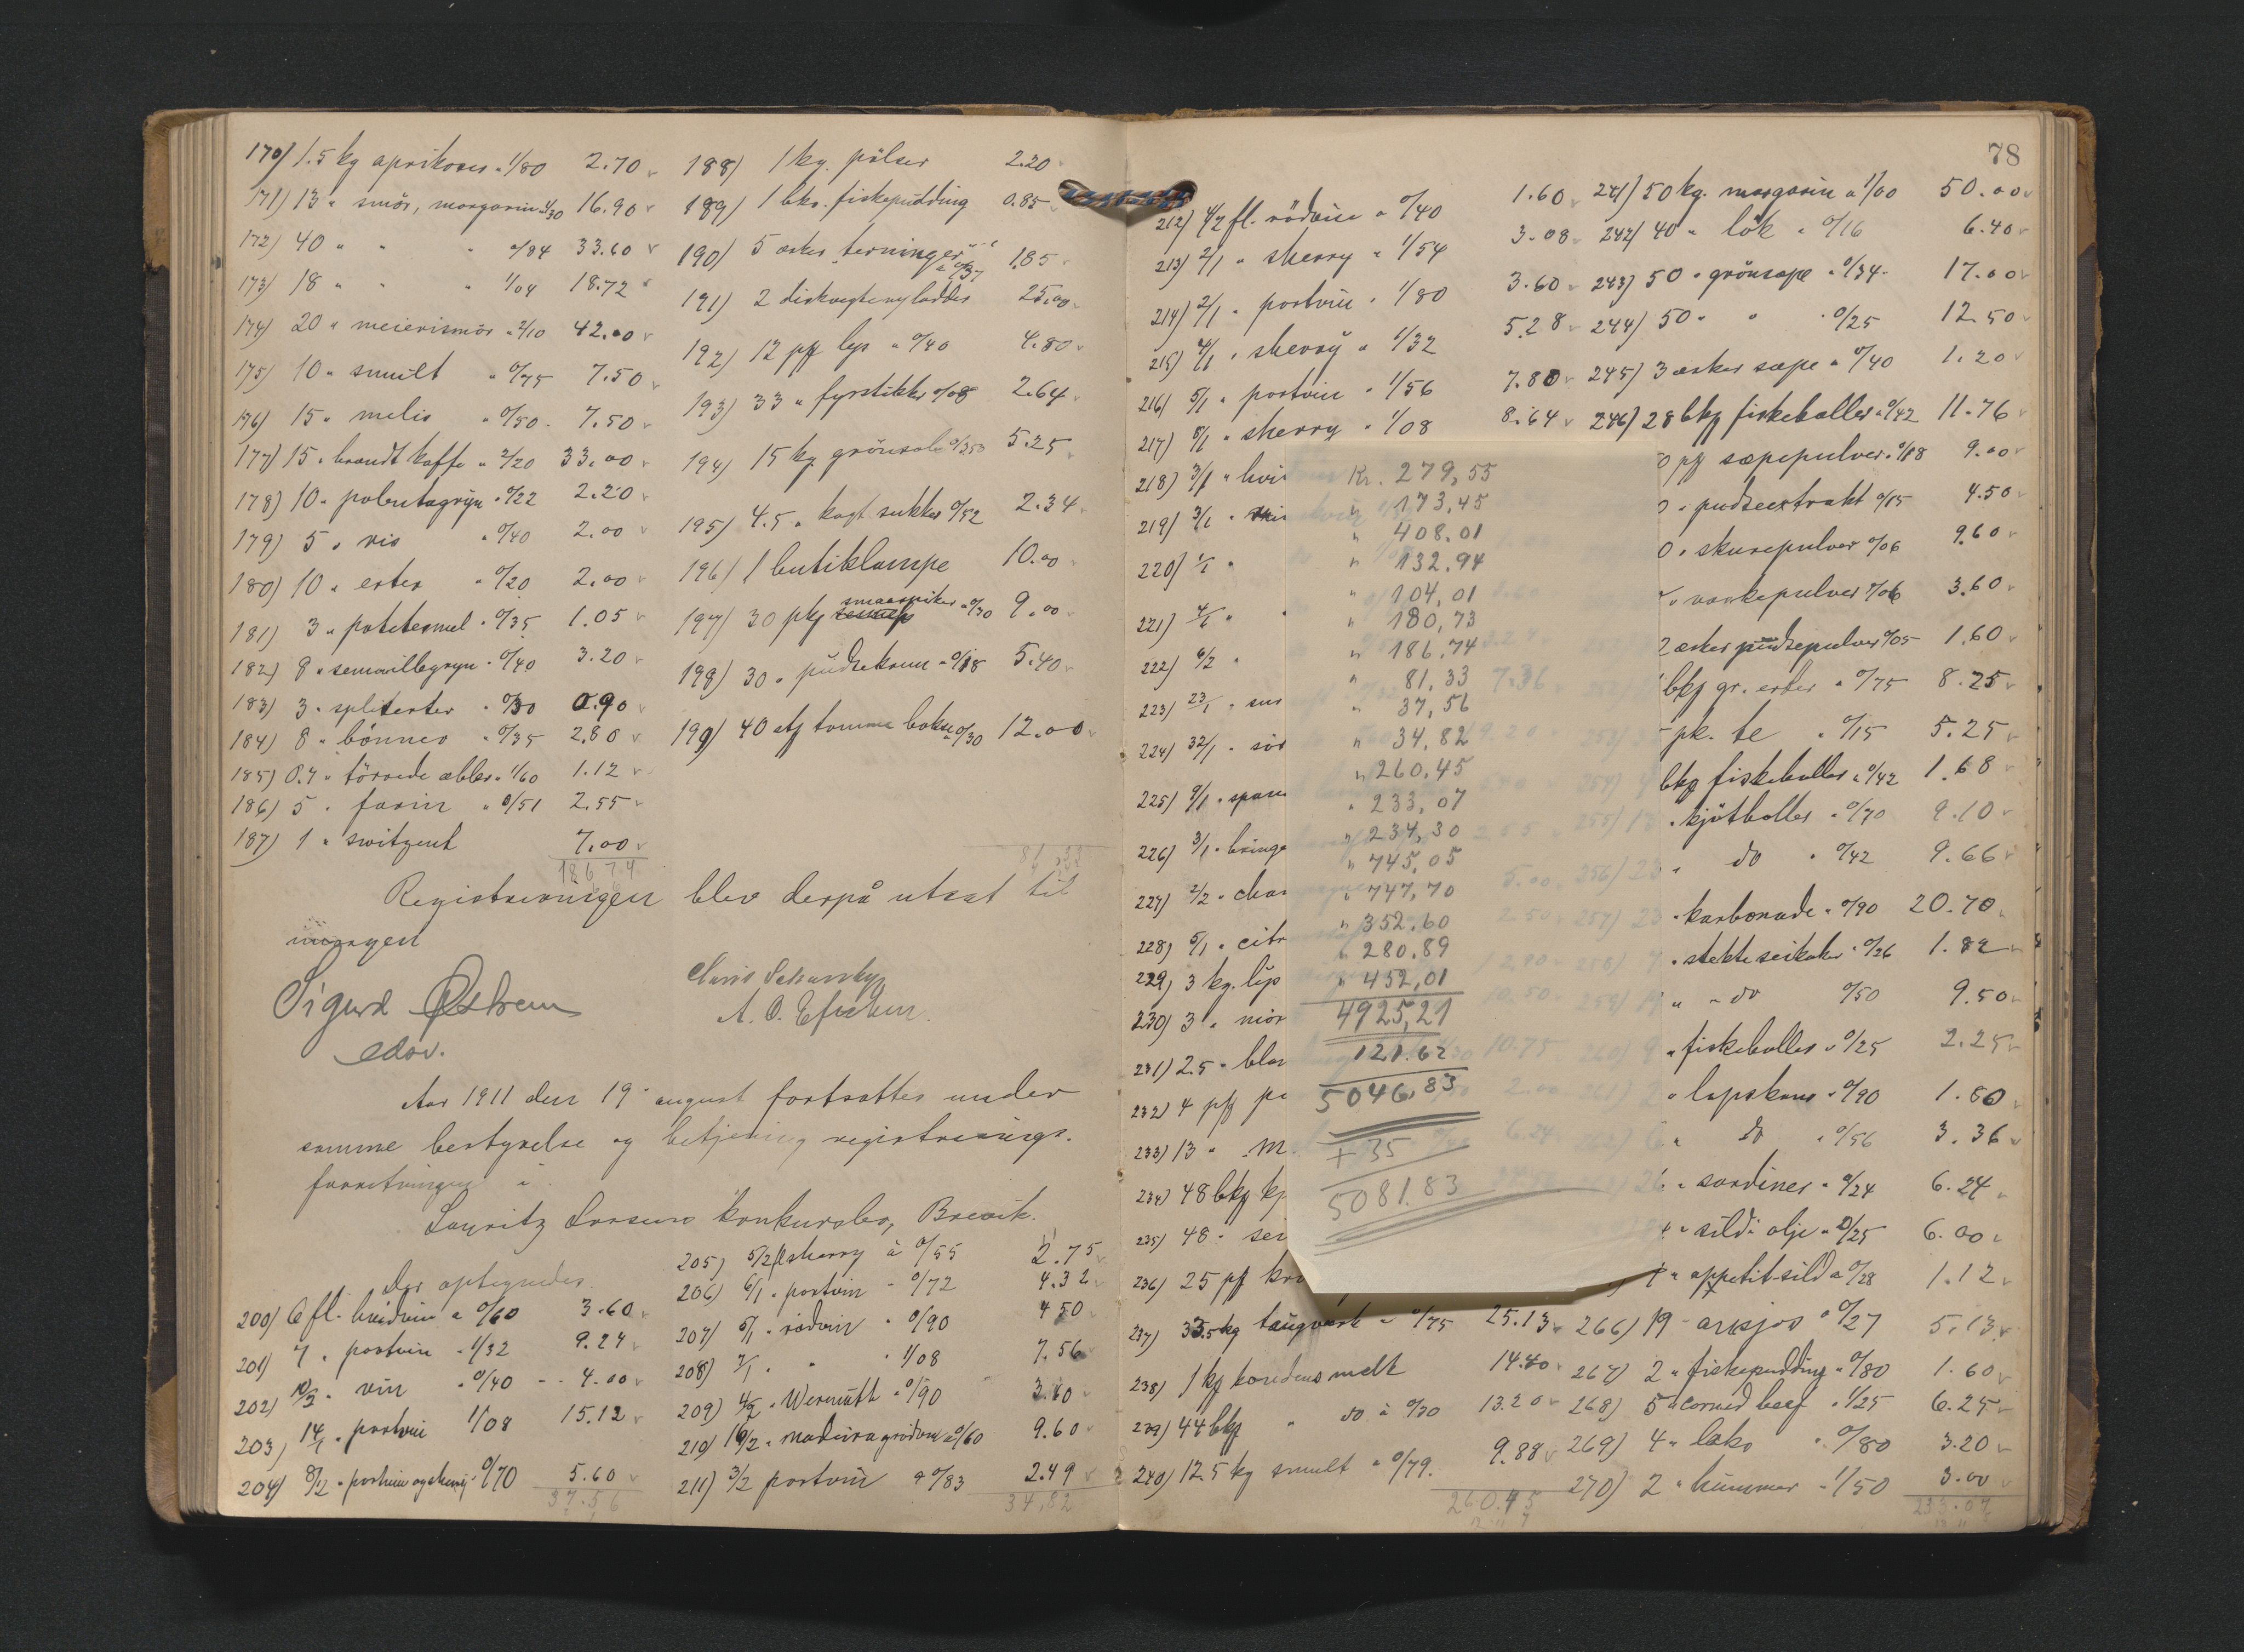 170) 1.5 kg aprikoser " 1/80 2.70
171) 13 " smör, margarin 1/30 16.90
172) 40 " " " 0/84 33.60
173) 18 " " " 1/04 18.72
174) 20 " meierismör " 2/10 42.00
175) 10 " smult " 0/75 7.50
176) 15 " melis " 0/50 7.50
177) 15 " brændt kaffe " 2/20 33.00
178) 10 " polentagryn " 0/22 2.20
179) 5 " ris " 0/40 2.00
180) 10 " erter " 0/20 2.00
181) 3 " potetesmel " 0/35 1.05
182) 8 " semoillegryn " 0/40 3.20
183) 3 " spliterter " 0/30 0.90
184) 8 " bönner " 0/35 2.80
185) 0.7 " törrede æbler " 1/60 1.12
186) 5 " farin " 0/51 2.55
187) 1 " switzent 7.00
186.74
188) 1 kg. pölser 2.20
189) 1 bks. fiskepudding 0.85
190) 5 æsker terninger " 0/37 1.85
191) 2 diskvegte 25.00
192) 12 pk lys " 0/40 4.80
193) 33 " fyrstikker 0/08 2.64
194) 15 kg grönsale 0/35 5.25
195) 4.5 " kagt sukker 0/52 2.34
196) 1 butiklampe 10.00
197) 30 pk smaaspiker " 0/30 9.00
198) 30 " pudsekrem " 0/18 5.40
199) 40 stk tomme bokse 0/30 12.00
81.33
Registreringen blev derpå utsat til
imorgen
Sigurd Østrem
edsv.
Aar 1911 den 19 august fortsattes under
samme bestyrelse og betjening registrerings-
forretningen i
Lauritz Larsens konkursbo, Brevik.
Der optegnedes.
200) 6 fl. hvidvin a 0/60 3.60
201) 7 " portvin " 1/32 9.24
202) 10/2 " vin " 0/40 4.00
203) 14/1 " portvin 1/08 15.12
204) 8/2 " portvin og sherry " 0/70 5.60
37.56
205) 5/2 fl sherry à 0/55 2.75
206) 6/1 " portvin " 0/72 4.32
207) 5/1 " rödvin " 0/90 4.50
208) 7/1 " " " 1/08 7.56
209) 4/2 " Wermuth " 0/90 3.60
210) 16/2 " madeira a 0/60 9.60
211) 3/2 portvin a 0/83 2.49
34,82
78
212) 4/2 fl. rödvin a 0/40 1.60
213) 2/1 " sherry " 1/54 3.08
214) 2/1 " portvin " 1/80 3.60
215) 4/1 " sherry " 1/32 5.28
216) 5/1 " portvin " 1/56 7.80
217) 8/1 " sherry " 1/08 8.64
218) 3/1 " hvi
219) 3/1 "
220) 1/1 "
221) 4/1 "
222) 6/2 "
223) 23/1 "
224) 32/1 "
225) 9/1 "
226) 3/1 " bringe
227) 2/2 " cha
228) 5/1 " citr
229) 3 kg. lip
230) 3 "
231) 2.5 " bla
232) 4 pk
233) 13 " M
234) 48 bkg
235) 48 " sei
236) 25 pk
237) 33.5 kg 0/75 25.13
238) 1 kg kondens melk 14.40
239) 44 bkg " do à 0/30 13.20
240) 12.5 kg smult " 0/79. 9.88
260.45
Kr. 279,55
" 173,45
" 408.01
" 132.94
" 104,01
" 180,73
" 186,74
" 81,33
" 37,56
" 34,82
" 260,45
" 233,07
" 234,30
" 745,05
" 747,70
" 352.60
" 280.89
" 452,01
4925,21
121.62
5046,83
+ 35
5081.83
241) 50 kg. margarin a 1/00 50.00
242) 40 " lök " 0/16 6.40
243) 50 " grönsape " 0/34 17.00
244) 50 " " " 0/25 12.50
245) 3 æsker sæpe " 0/40 1.20
246) 28 bkg fiskeboller " 0/42 11.76
0 pk sæpepulver " 0/18 9.00
" pudseextrakt 0/15 4.50
0 " skurepulver 0/06 9.60
" vaskepulver 0/06 3.60
2 æsker pudsepulver 0/05 1.60
bkg gr. erter " 0/75 8.25
pk. te " 0/15 5.25
bkg fiskeboller " 0/42 1.68
" kjötboller " 0/70 9.10
" do " 0/42 9.66
" karbonade " 0/90 20.70
" stekte seikaker " 0/26 1.82
" " do 0/50 9.50
" fiskeboller " 0/25 2.25
" lapskaus " 0/90 1.80
" do " 0/56 3.36
" sardiner " 0/24 6.24
" sild i olje " 0/25 6.00
" appetit-sild a 0/28 1.12
266) 19 " ansjos " 0/27 5.13
267) 2 " fiskepudding " 0/80 1.60
268) 5 " corned beef " 1/25 6.25
269) 4 " laks " 0/80 3.20
270) 2 " hummer " 1/50 3.00
233.07